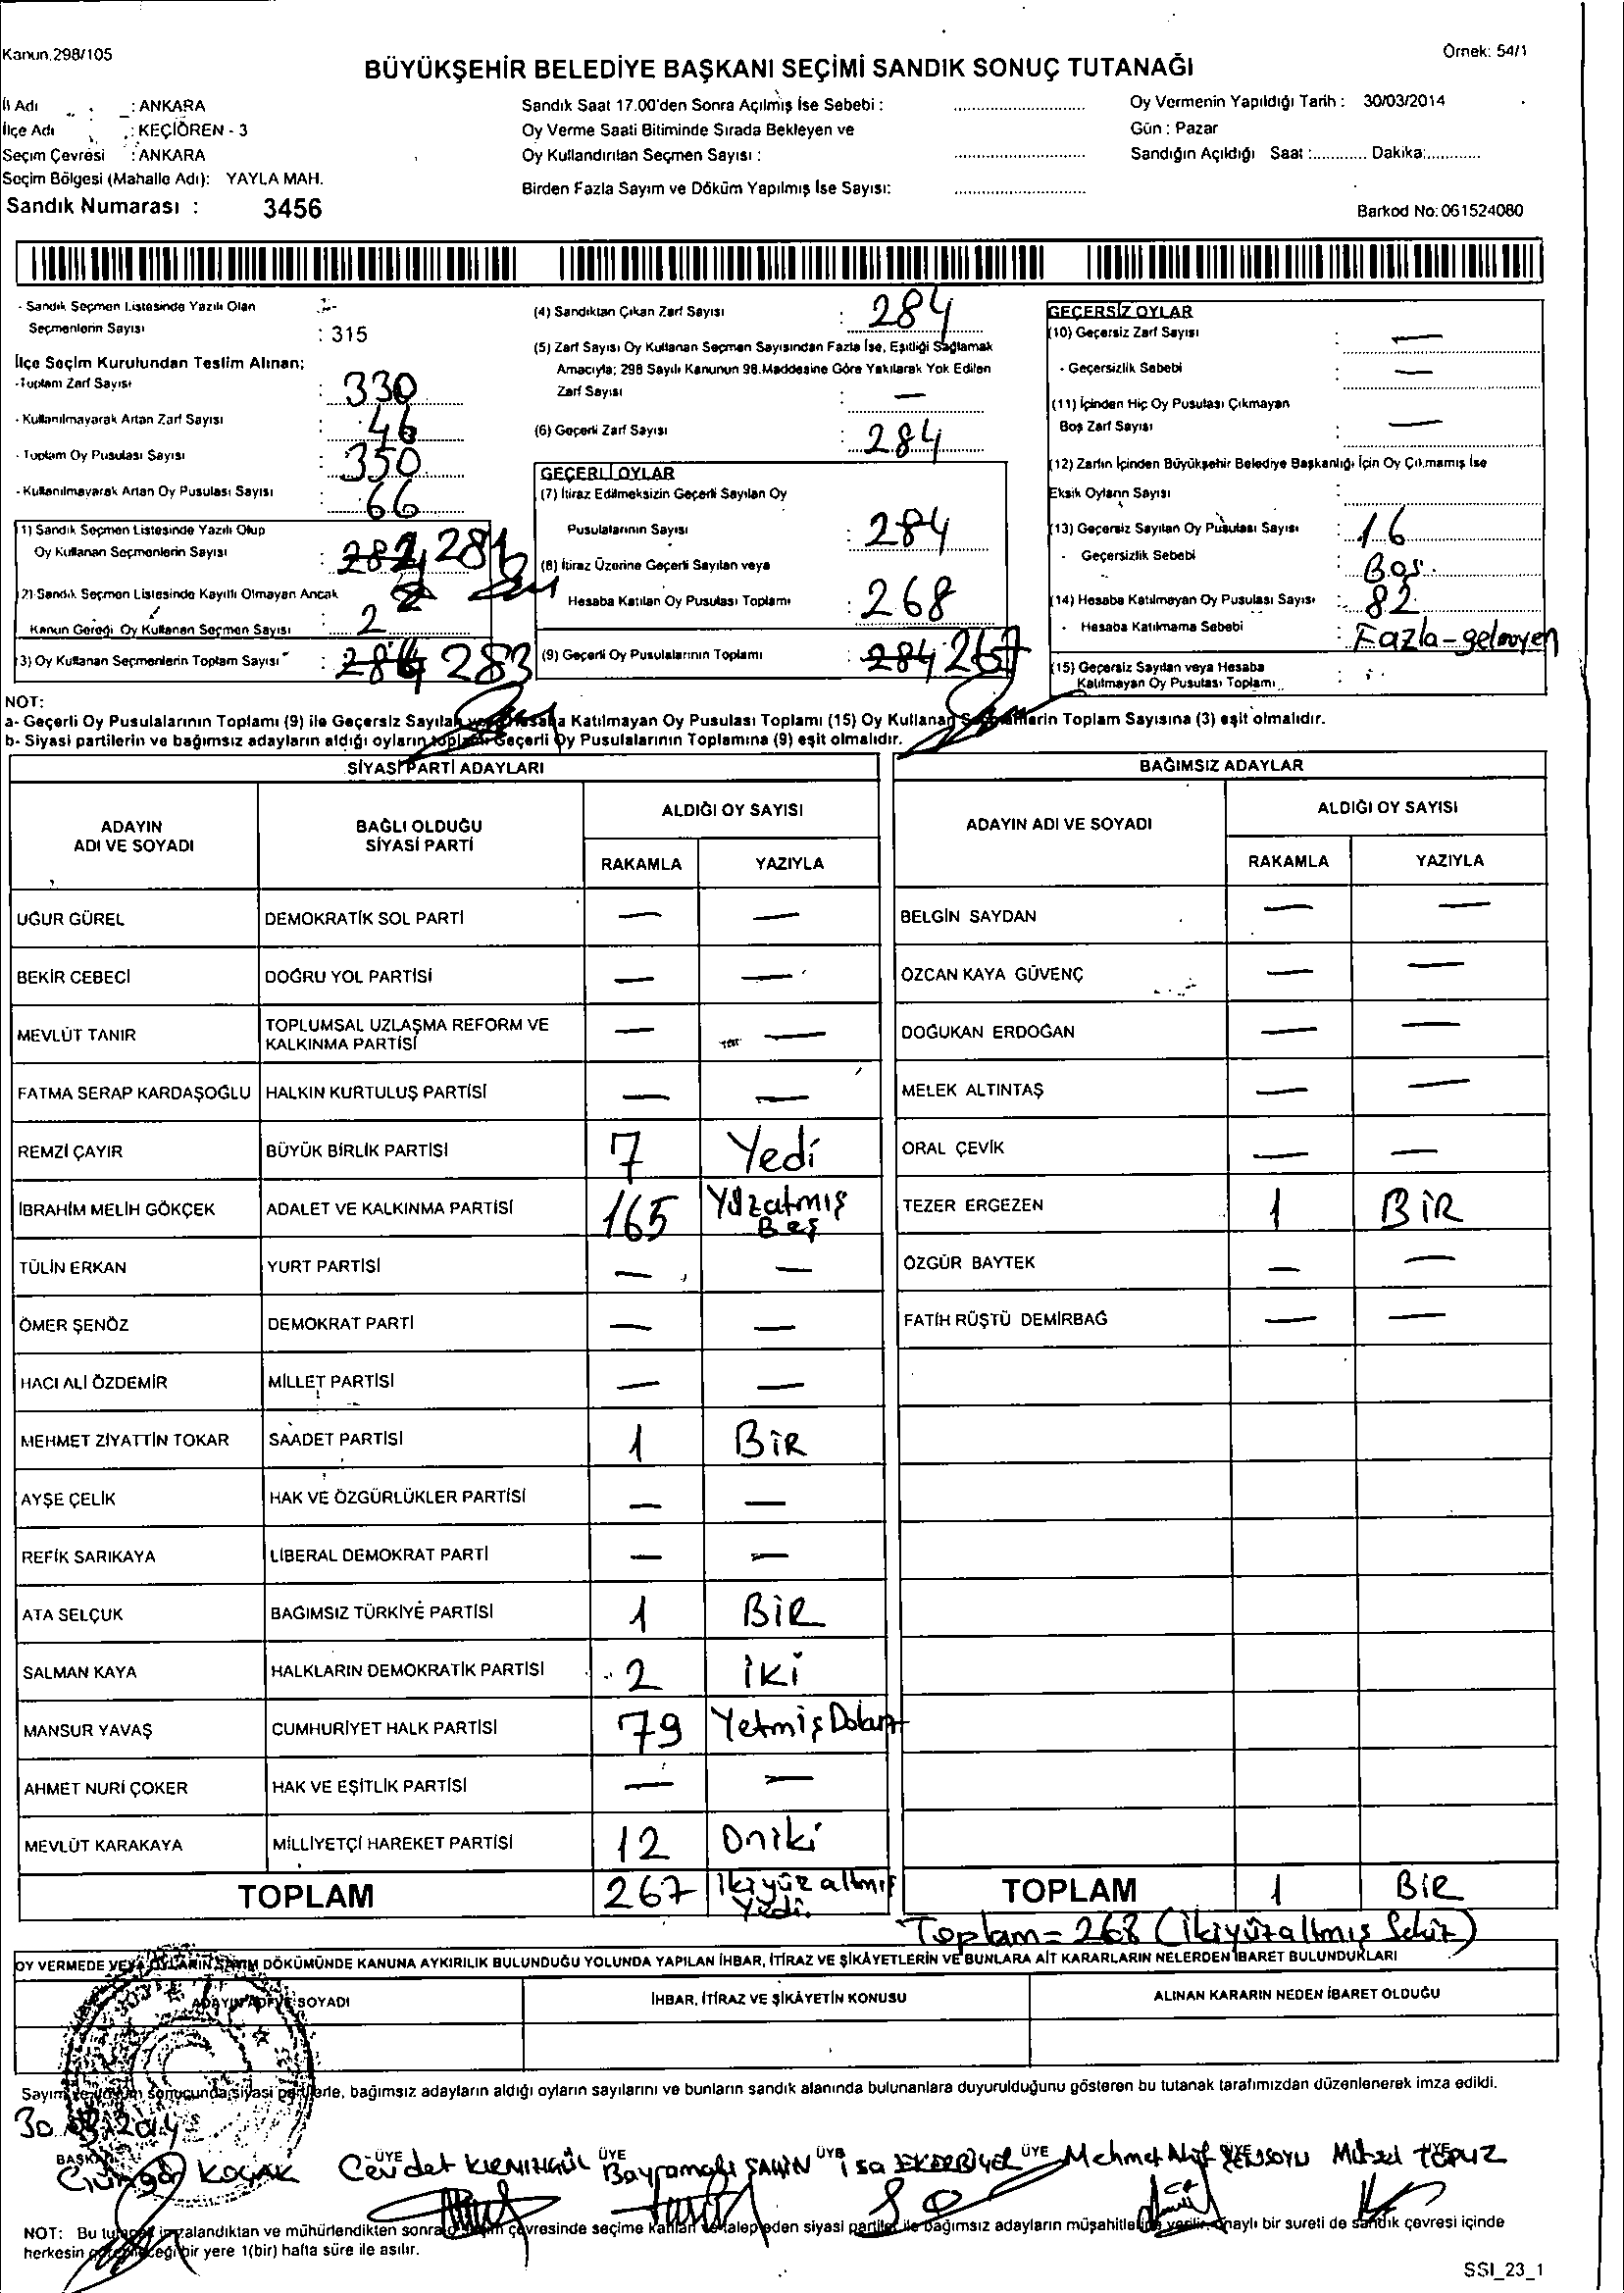 Kanun.298/105
Örnek: 54/1
BÜYÜKŞEHİR BELEDİYE BAŞKANI SEÇİMİ SANDIK SONUÇ TUTANAĞI
İl Adı : ANKARA
İlçe Adı : KEÇİÖREN - 3
Seçim Çevresi : ANKARA
Seçim Bölgesi (Mahalle Adı): YAYLA MAH.
Sandık Numarası : 3456
Sandık Saat 17.00'den Sonra Açılmış İse Sebebi :
Oy Verme Saati Bitiminde Sırada Bekleyen ve
Oy Kullandırılan Seçmen Sayısı :
Birden Fazla Sayım ve Döküm Yapılmış İse Sayısı:
Oy Vermenin Yapıldığı Tarih : 30/03/2014
Gün : Pazar
Sandığın Açıldığı Saat :............ Dakika:............
Barkod No: 061524080
- Sandık Seçmen Listesinde Yazılı Olan
Seçmenlerin Sayısı : 315
İlçe Seçim Kurulundan Teslim Alınan;
-Toplam Zarf Sayısı : 330
- Kullanılmayarak Artan Zarf Sayısı : 46
- Toplam Oy Pusulası Sayısı : 350
- Kullanılmayarak Artan Oy Pusulası Sayısı : 66
(1) Sandık Seçmen Listesinde Yazılı Olup
Oy Kullanan Seçmenlerin Sayısı : 282
(2) Sandık Seçmen Listesinde Kayıtlı Olmayan Ancak
Kanun Gereği Oy Kullanan Seçmen Sayısı : 2
(3) Oy Kullanan Seçmenlerin Toplam Sayısı : 284 283
(4) Sandıktan Çıkan Zarf Sayısı : 284
(5) Zarf Sayısı Oy Kullanan Seçmen Sayısından Fazla İse, Eşitliği Sağlamak
Amacıyla; 298 Sayılı Kanunun 98.Maddesine Göre Yakılarak Yok Edilen
Zarf Sayısı : —
(6) Geçerli Zarf Sayısı : 284
GEÇERLİ OYLAR
(7) İtiraz Edilmeksizin Geçerli Sayılan Oy
Pusulalarının Sayısı : 284
(8) İtiraz Üzerine Geçerli Sayılan veya
Hesaba Katılan Oy Pusulası Toplamı : 268
(9) Geçerli Oy Pusulalarının Toplamı : 284 267
GEÇERSİZ OYLAR
(10) Geçersiz Zarf Sayısı : —
- Geçersizlik Sebebi : —
(11) İçinden Hiç Oy Pusulası Çıkmayan
Boş Zarf Sayısı : —
(12) Zarfın İçinden Büyükşehir Belediye Başkanlığı İçin Oy Çıkmamış İse
Eksik Oyların Sayısı :
(13) Geçersiz Sayılan Oy Pusulası Sayısı : 16
- Geçersizlik Sebebi : Boş.
(14) Hesaba Katılmayan Oy Pusulası Sayısı : 82
- Hesaba Katılmama Sebebi : Fazla-gelmeyen
(15) Geçersiz Sayılan veya Hesaba
Katılmayan Oy Pusulası Toplamı :
NOT:
a- Geçerli Oy Pusulalarının Toplamı (9) ile Geçersiz Sayılan veya Hesaba Katılmayan Oy Pusulası Toplamı (15) Oy Kullanan Seçmenlerin Toplam Sayısına (3) eşit olmalıdır.
b- Siyasi partilerin ve bağımsız adayların aldığı oyların toplamı Geçerli Oy Pusulalarının Toplamına (9) eşit olmalıdır.
SİYASİ PARTİ ADAYLARI
ADAYIN ADI VE SOYADI BAĞLI OLDUĞU SİYASİ PARTİ ALDIĞI OY SAYISI
RAKAMLA YAZIYLA
UĞUR GÜREL DEMOKRATİK SOL PARTİ — —
BEKİR CEBECİ DOĞRU YOL PARTİSİ — —
MEVLÜT TANIR TOPLUMSAL UZLAŞMA REFORM VE KALKINMA PARTİSİ — —
FATMA SERAP KARDAŞOĞLU HALKIN KURTULUŞ PARTİSİ — —
REMZİ ÇAYIR BÜYÜK BİRLİK PARTİSİ 7 Yedi
İBRAHİM MELİH GÖKÇEK ADALET VE KALKINMA PARTİSİ 165 Yüzatmış Beş
TÜLİN ERKAN YURT PARTİSİ — —
ÖMER ŞENÖZ DEMOKRAT PARTİ — —
HACI ALİ ÖZDEMİR MİLLET PARTİSİ — —
MEHMET ZİYATTİN TOKAR SAADET PARTİSİ 1 BİR
AYŞE ÇELİK HAK VE ÖZGÜRLÜKLER PARTİSİ — —
REFİK SARIKAYA LİBERAL DEMOKRAT PARTİ — —
ATA SELÇUK BAĞIMSIZ TÜRKİYE PARTİSİ 1 BİR
SALMAN KAYA HALKLARIN DEMOKRATİK PARTİSİ 2 iKi
MANSUR YAVAŞ CUMHURİYET HALK PARTİSİ 79 Yetmiş Dokuz
AHMET NURİ ÇOKER HAK VE EŞİTLİK PARTİSİ — —
MEVLÜT KARAKAYA MİLLİYETÇİ HAREKET PARTİSİ 12 Oniki
TOPLAM 267 İkiyüz altmış Yedi.
BAĞIMSIZ ADAYLAR
ADAYIN ADI VE SOYADI ALDIĞI OY SAYISI
RAKAMLA YAZIYLA
BELGİN SAYDAN — —
ÖZCAN KAYA GÜVENÇ — —
DOĞUKAN ERDOĞAN — —
MELEK ALTINTAŞ — —
ORAL ÇEVİK — —
TEZER ERGEZEN 1 BİR
ÖZGÜR BAYTEK — —
FATİH RÜŞTÜ DEMİRBAĞ — —
TOPLAM 1 BİR
Toplam = 268 (ikiyüzaltmış Sekiz)
OY VERMEDE VEYA OYLARIN SAYIM DÖKÜMÜNDE KANUNA AYKIRILIK BULUNDUĞU YOLUNDA YAPILAN İHBAR, İTİRAZ VE ŞİKÂYETLERİN VE BUNLARA AİT KARARLARIN NELERDEN İBARET BULUNDUKLARI
ADAYIN ADI VE SOYADI İHBAR, İTİRAZ VE ŞİKÂYETİN KONUSU ALINAN KARARIN NEDEN İBARET OLDUĞU
Sayım ve döküm sonucunda siyasi partilerle, bağımsız adayların aldığı oyların sayılarını ve bunların sandık alanında bulunanlara duyurulduğunu gösteren bu tutanak tarafımızdan düzenlenerek imza edildi.
30.03.2014
BAŞKAN ÜYE ÜYE ÜYE ÜYE ÜYE ÜYE
KOÇAK Cevdet Bayramali ŞAHİN isa Mehmet Akif
NOT: Bu tutanak imzalandıktan ve mühürlendikten sonra seçim çevresinde seçime katılan ve talep eden siyasi partiler ile bağımsız adayların müşahitlerine verilir, onaylı bir sureti de sandık çevresi içinde
herkesin görebileceği bir yere 1(bir) hafta süre ile asılır.
SSI_23_1